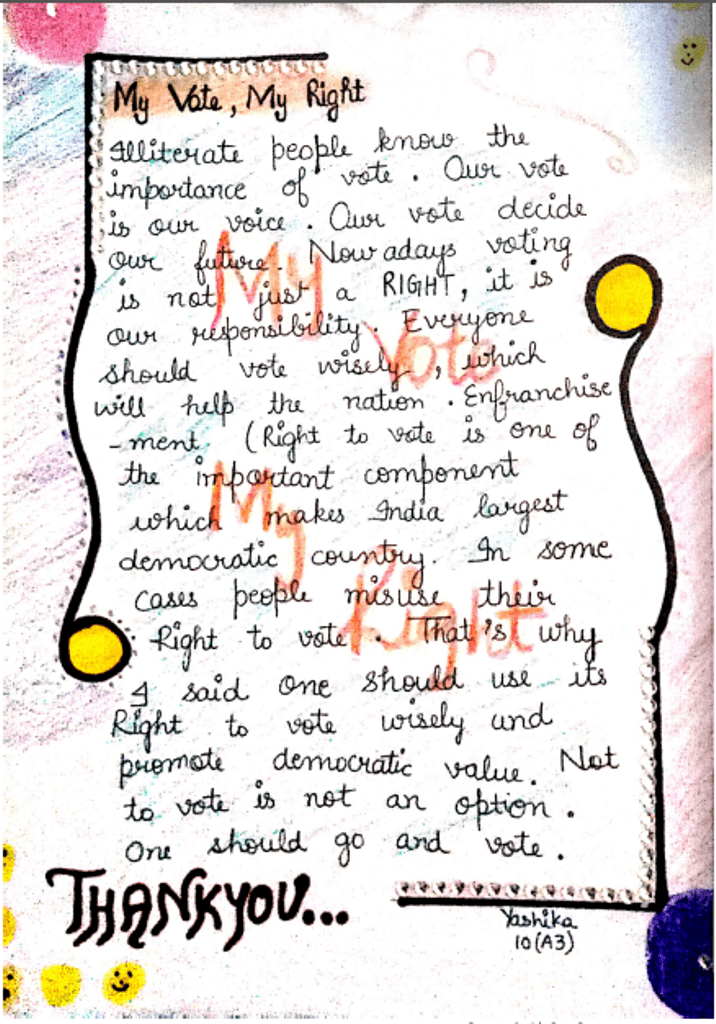 My Vote, My Right
Illiterate people know the
importance of vote. Our vote
is our voice. Our vote decide
our future. Nowadays voting
is not just a RIGHT, it is
our responsibility. Everyone
should vote wisely, which
will help the nation. Enfranchise
-ment (Right to vote is one of
the important component
which makes India largest
democratic country. In some
cases people misuse their
Right to vote. That's why
I said one should use its
Right to vote wisely and
promote democratic value. Not
to vote is not an option.
One should go and vote.
My
Vote
My
Right
THANKYOU...
Yashika
10(A3)